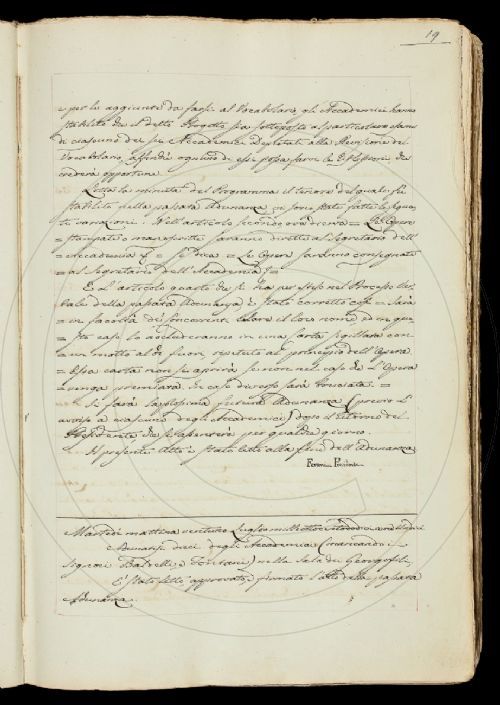 19
e per le aggiunte da farsi al Vocabolario gli Accademici hanno
stabilito che il detto Progetto sia sottoposto al particolare esame
di ciascuno dei sei Accademici Deputati alla Revisione del
Vocabolario, affinchè ognuno di essi possa farvi le Riflessioni che
crederà opportune.
Letta la minuta del Programma il tenore del quale fù
stabilito nella passata Adunanza vi sono state fatte le segue
ti variazioni. Nell'articolo secondo ove diceva = Le Opere
= stampate e manoscritte saranno dirette al Segretario dell'
= Accademia = si dica = Le Opere saranno consegnate
= al Segretario dell'Accademia =
E l'articolo quarto che si ha per esteso nel Processo Ver
bale della passata Adunanza, è stato corretto così = Sarà
= in facoltà dei Concorrenti celare il loro nome, ed in que
= sto caso lo acchiuderanno in una carta sigillata con
= un motto al di fuori, ripetuto al principio dell'Opera.
= Essa carta non si aprirà se non nel caso che l'Opera
= venga premiata. In caso diverso sarà bruciata. =
Si farà la prossima futura Adunanza (previo l'
avviso a ciascuno degli Accademici) dopo il ritorno del
Presidente che si assenterà per qualche giorno.
Il presente Atto è stato letto alla fine dell'Adunanza
Ferroni Presidente
Martedì mattina ventuno Luglio mille ottocento dodici
Adunatisi dieci degli Accademici (mancando i
Signori Baldelli e Fontani) nella Sala dei Georgofili,
E' stato letto approvato, e firmato l'atto della passata
Adunanza.